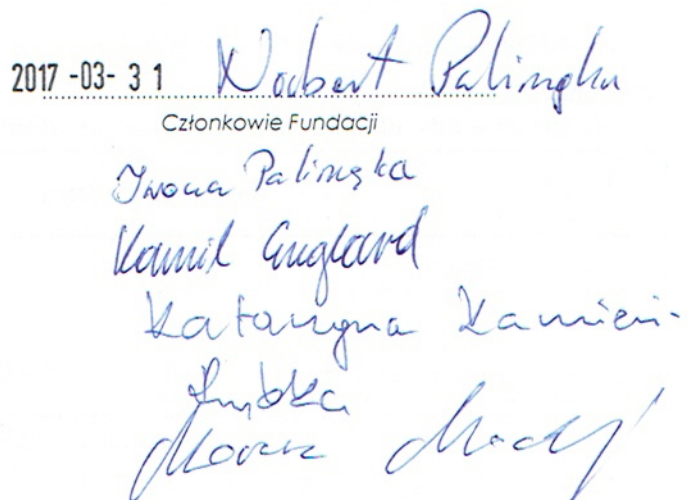 2017 -03- 3 1 Norbert Palingka
Członkowie Fundacji
Iwona Palingka
Kamil England
Katarzyna Kamień-
Marek